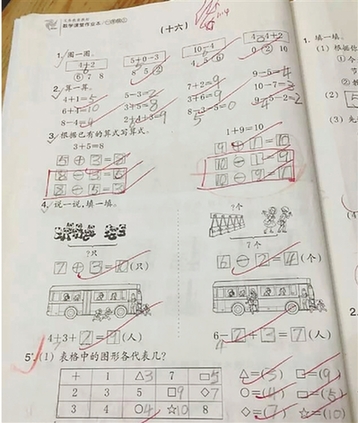 (十六)
1. 圈一圈。
4+2 5+0-3 10-4 4-4+2
6 7 8 8 5 2 4 5 6 0 2 10
2. 算一算。
4+1=5 8-3= 7+2=9 9-5=4
6+ =10 3+5=8 3+6=9 10-7=
8-4=4 8- -5=0 9-5-2=2
3. 根据已有的算式写算式。
3+5=8 1+9=10
5+3=8 9+1=10
8-3=5 10-1=9
8-5=3 10-9=1
4. 说一说,填一填。
?个
?只 7个
7+3= (只) 6-2=4(个)
4+3+2= (人) 6-2+3=7(人)
5. (1) 表格中的图形各代表几?
+ 1 △3 7 □5
2 3 5 □9 ◇7
3 4 ○4 ☆10 8
△=(3) □=(9)
○=(4) □=(5)
◇=(7) ☆=(10)
1. 填一填。
(1) 根据你
① 今
②
(2) 5
(3)
2.
(1)